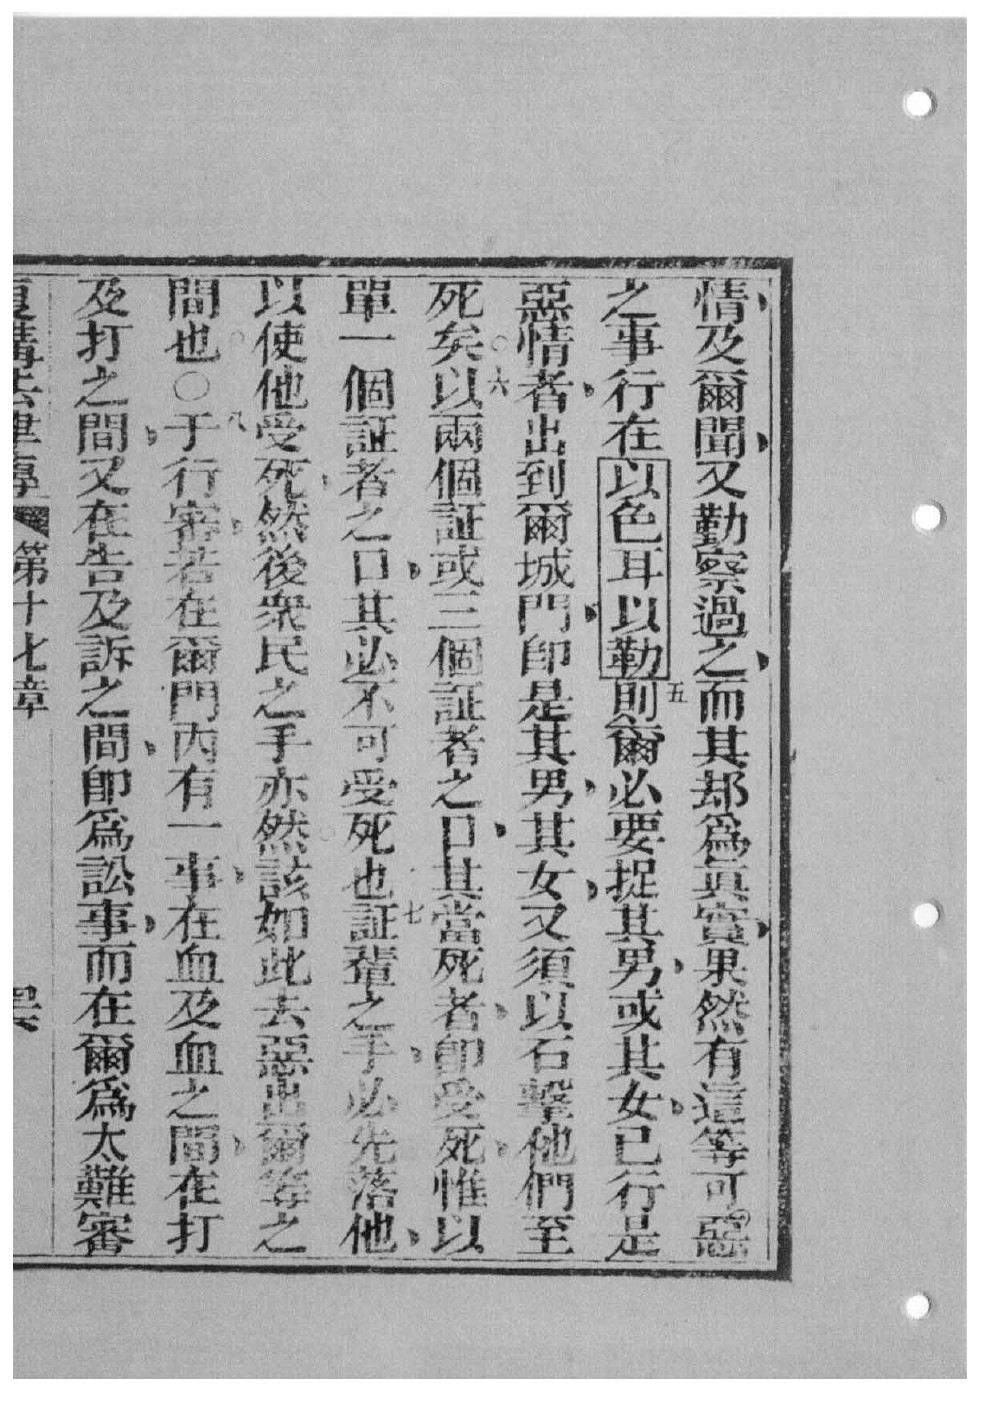 情及爾聞又勤察過之而其却爲眞實果然有這等可惡
之事行在以色耳以勒五則爾必要捉其男或其女已行是
惡情者出到爾城門卽是其男其女又須以石擊他們至
死矣○六以兩個証或三個証者之口其當死者卽受死惟以
單一個証者之口其必不可受死也七証輩之手必先落他
以使他受死然後衆民之手亦然該如此去惡出爾等之
間也○八于行審若在爾門內有一事在血及血之間在打
及打之間又在告及訴之間卽爲訟事而在爾爲太難審
復講法律傳 第十七章